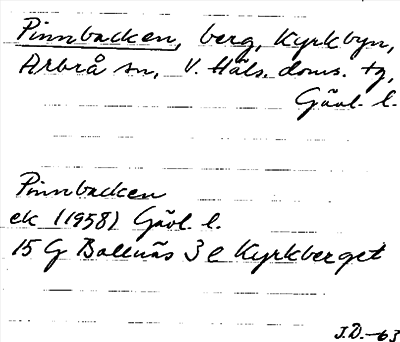 Pinnbacken, berg, Kyrkbyn,
Arbrå sn, V. Häls. doms. tg,
Gävl. l.
Pinnbacken
ek (1958) Gävl. l.
15 G Bollnäs 3 e Kyrkberget
J.D.-63